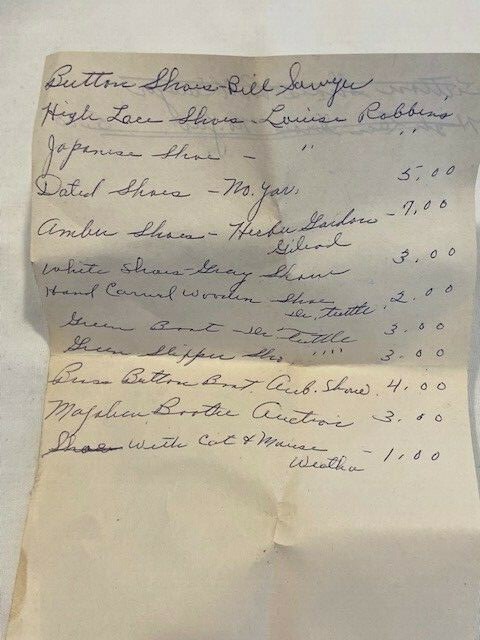 Button Shoes - Bill Sawyer
High Lace Shoes - Louise Robbins
Japanese Shoe - " "
5.00
Dated Shoes - No. Yar.
Amber Shoes - Gardon - 7.00
Gilead
3.00
White Shoes - Gray Show
Hand Carved Wooden Shoe 2.00
Tuttle
Green Boot - Tuttle 3.00
Green Slipper Sho " " 3.00
Brass Button Boot Aub. Show. 4.00
Bootie Auction 3.00
Shoe With Cat & Mouse - 1.00